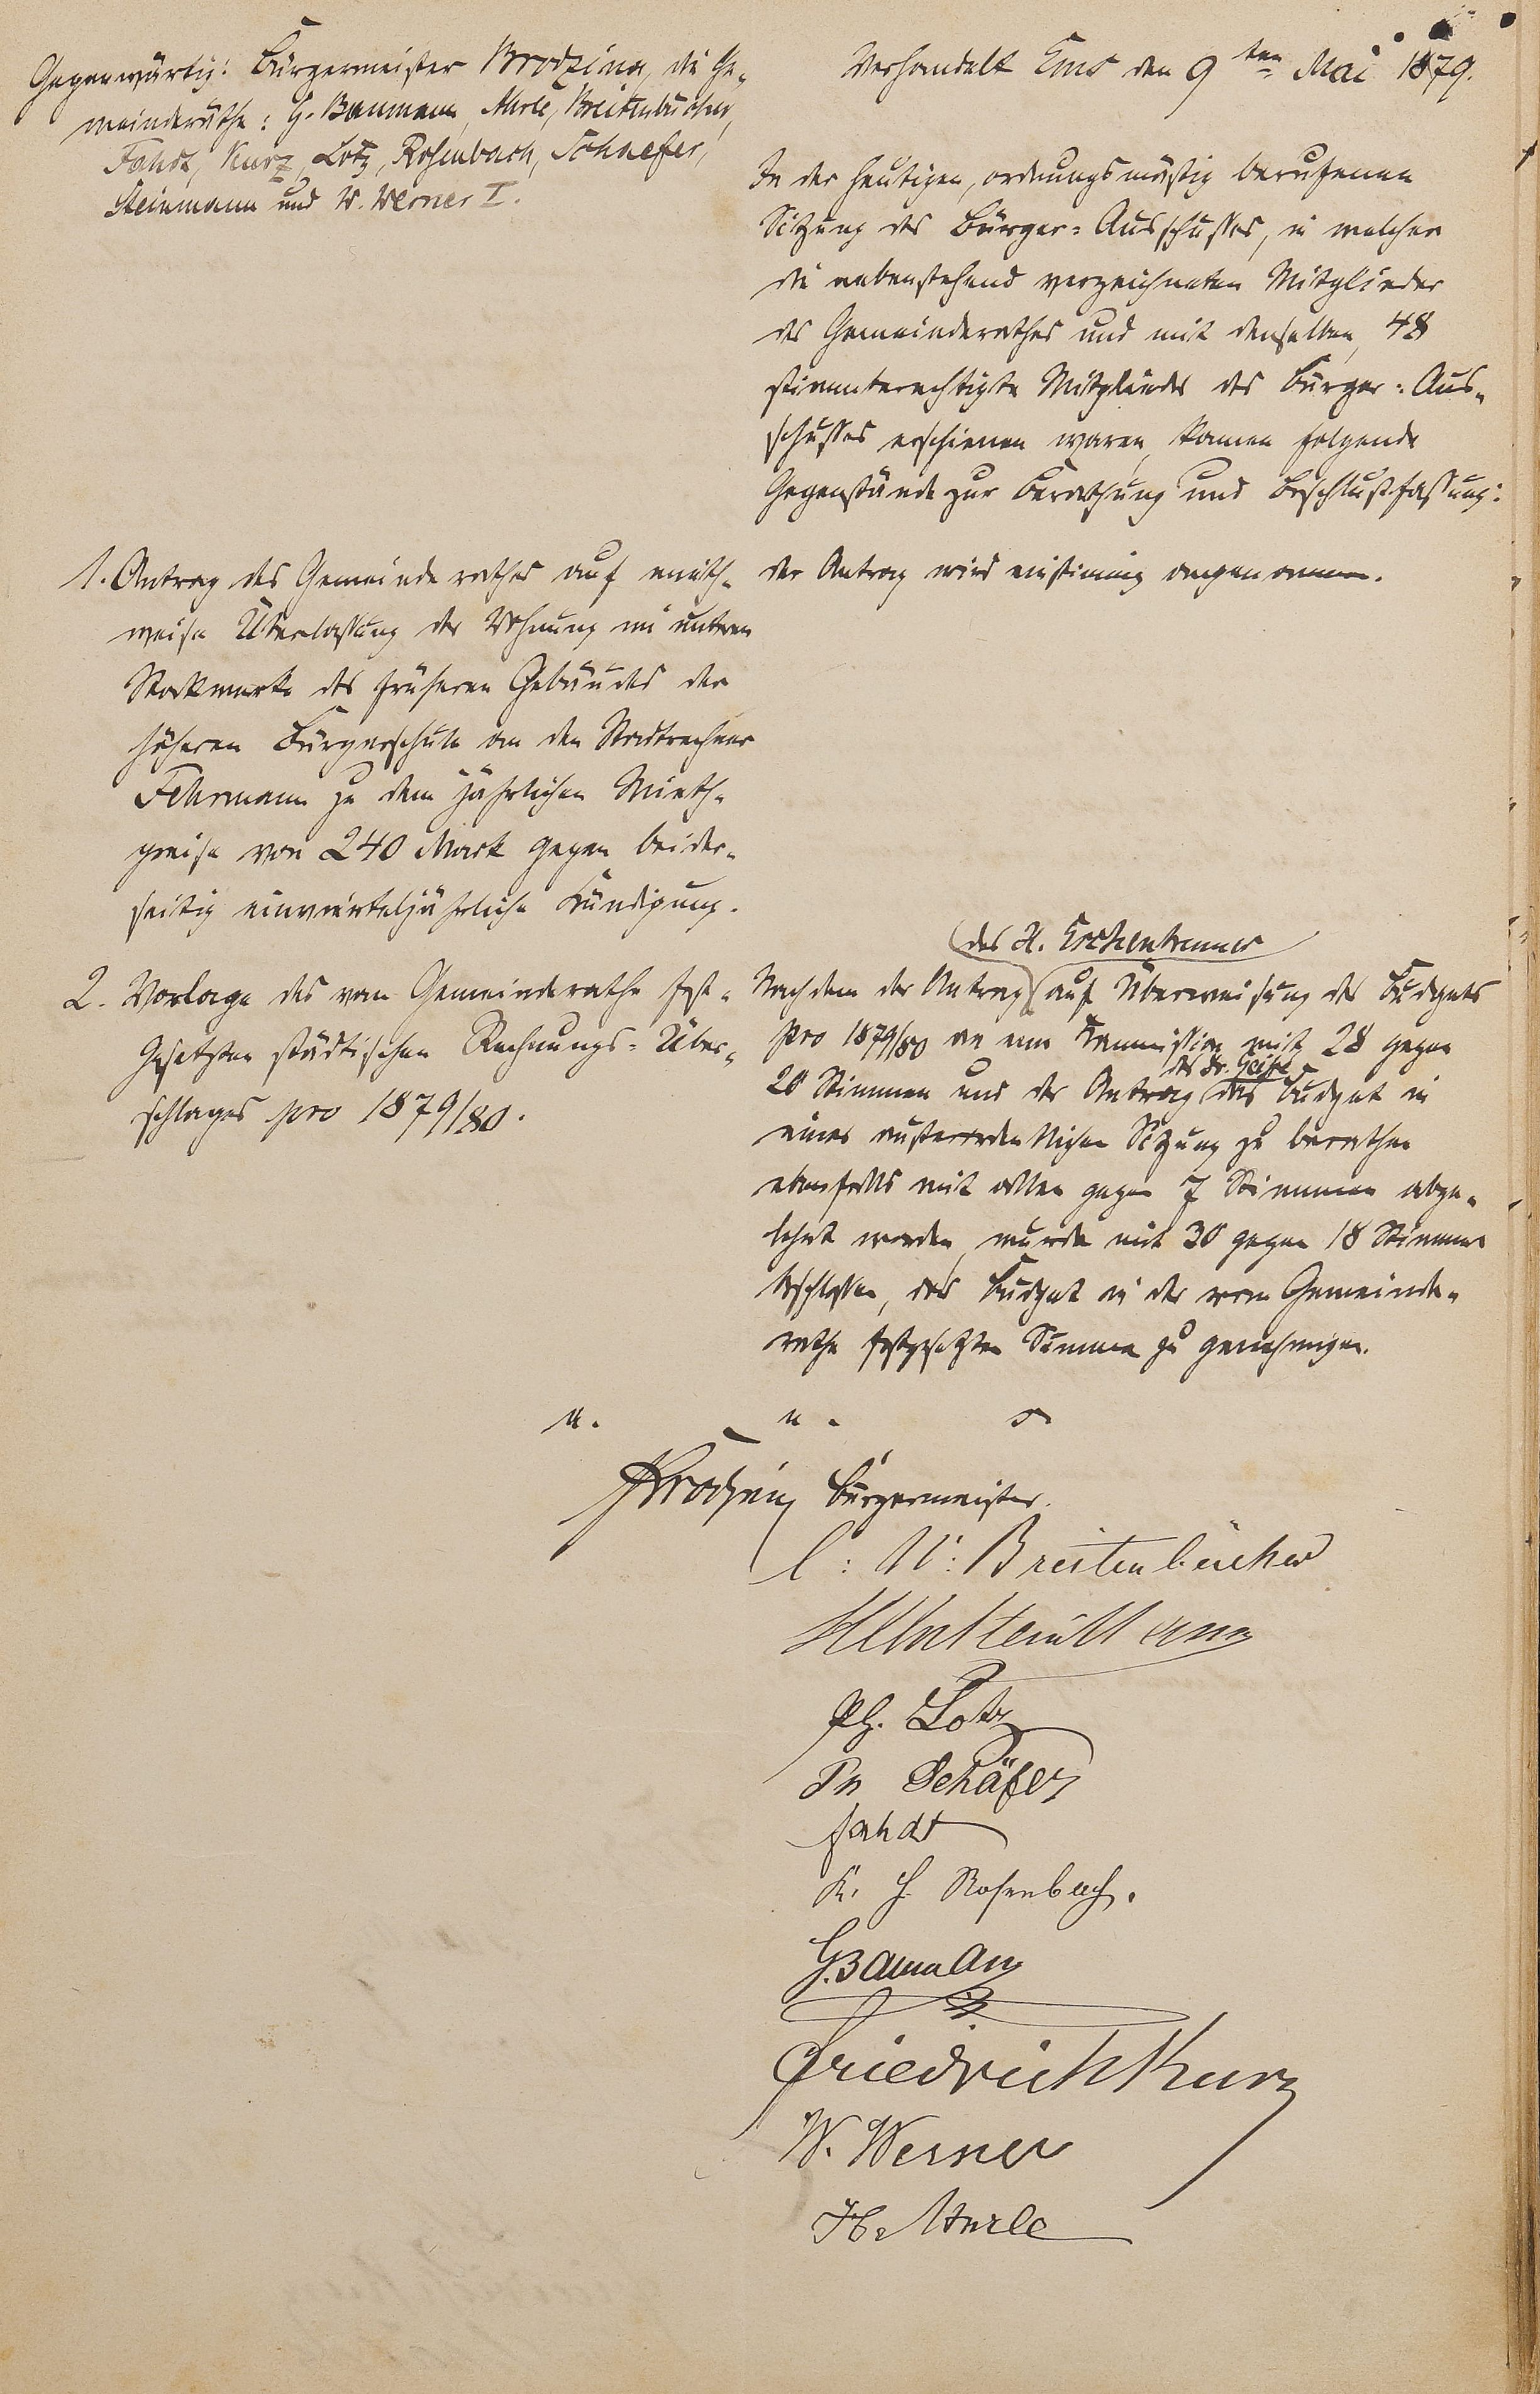 Gegenwärtig: Bürgermeister Brodzina, die Ge-
meinderäthe: G. Baumann, Merle, Breitenbücher,
Fahdt, Kurz, Lotz, Rosenbach, Schaefer,
Steinmann und W. Werner I.
Verhandelt Ems den 9ten Mai 1879.
In der heutigen, ordnungsmäßig berufenen
Sitzung des Bürger-Ausschusses, in welcher
die nebenstehend verzeichneten Mitglieder
des Gemeinderathes und mit denselben, 48
stimmberechtigte Mitglieder des Bürger-Aus-
schusses erschienen waren, kamen folgende
Gegenstände zur Berathung und Beschlußfassung:
1. Antrag des Gemeinderathes auf mieth-
weise Überlassung der Wohnung im untern
Stockwerke des früheren Gebäudes der
höheren Bürgerschule an den Stadtrechner
Fehrmann zu dem jährlichen Mieth-
preise von 240 Mark gegen beider-
seitig einvierteljährliche Kündigung.
der Antrag wird einstimmig angenommen.
2. Vorlage des vom Gemeinderathe fest-
gesetzten städtischen Rechnungs-Über-
schlages pro 1879/80.
des H. Eschenbrenner
Nachdem der Antrag auf Überweisung des Budgets
pro 1879/80 an eine Kommission mit 28 gegen
des Dr. Geiße
20 Stimmen und der Antrag das Budget in
einer außerordentlichen Sitzung zu berathen
ebenfalls mit allen gegen 7 Stimmen abge-
lehnt worden, wurde mit 30 gegen 18 Stimmen
beschlossen, das Budget in der vom Gemeinde-
rathe festgesetzten Summe zu genehmigen.
a. u. s
Brodzina Bürgermeister.
C: W: Breitenbücher
Steinmann
Ph. Lotz
Ph Schäfer
Fahdt
K. H. Rosenbach.
G. Baumann
Friedrich Kurz
W. Werner
H. Merle